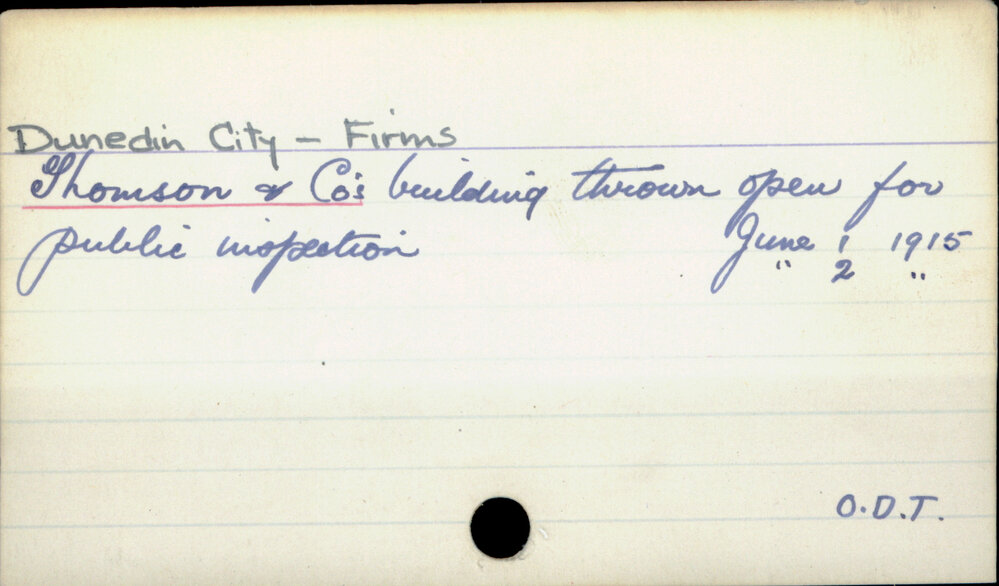 Dunedin City - Firms
Thomson & Co's building thrown open for
public inspection June 1 1915
" 2 "
O.D.T.